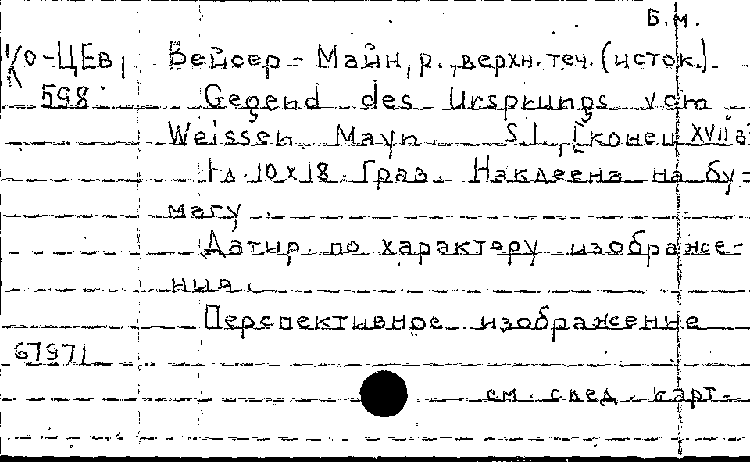 Б.м.
К0-ЦЕв, Вейсер-Майн, р., верхн. теч. (исток).
598 Gegend des Ursprungs vom
Weissen Mayn S.l., [конец XVII в
1 л. 10х18. Грав. Наклеена на бу-
магу.
Датир. по характеру изображе-
ния.
Перспективное изображение
67971
см. след. карт.